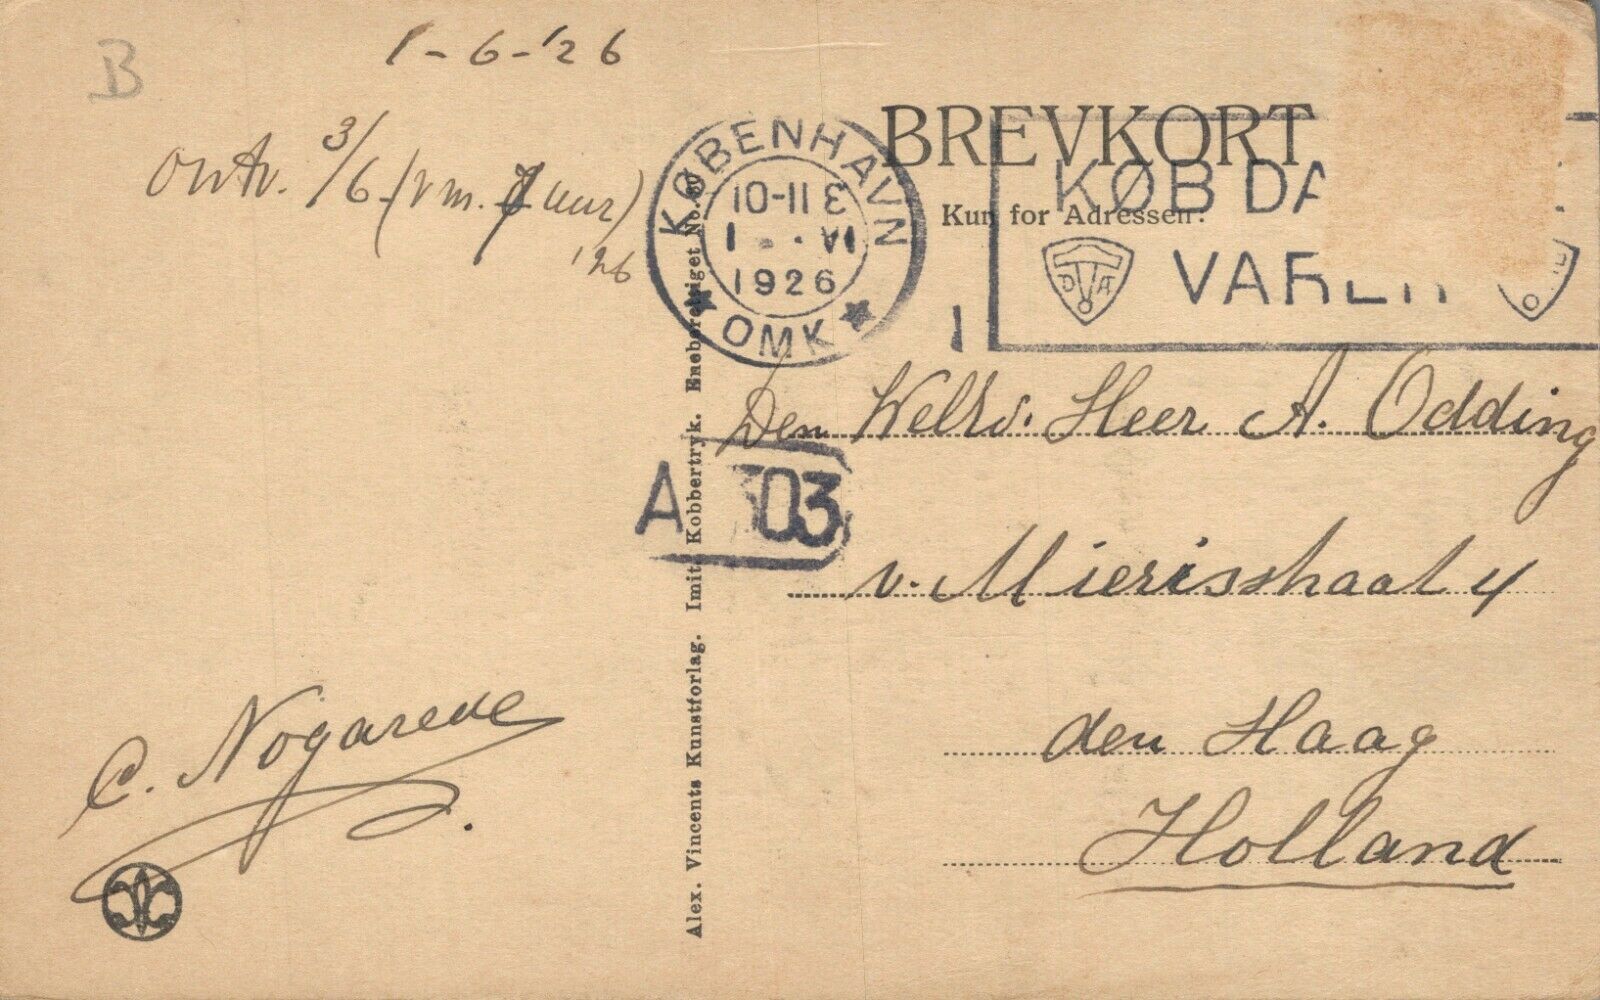 B
1-6-'26
ontv. 3/6 (v m. 7 uur)
'26
C. Nogarede
Alex. Vincents Kunstforlag. Imit. Kobbertryk. Eneberettiget No.
KØBENHAVN
10-11 E
1 . VI
1926
OMK
BREVKORT
Kun for Adressen:
KØB DA
VARER
D A
A 303
Den WelEd. Heer A. Odding
v. Mierisstraat 4
den Haag
Holland